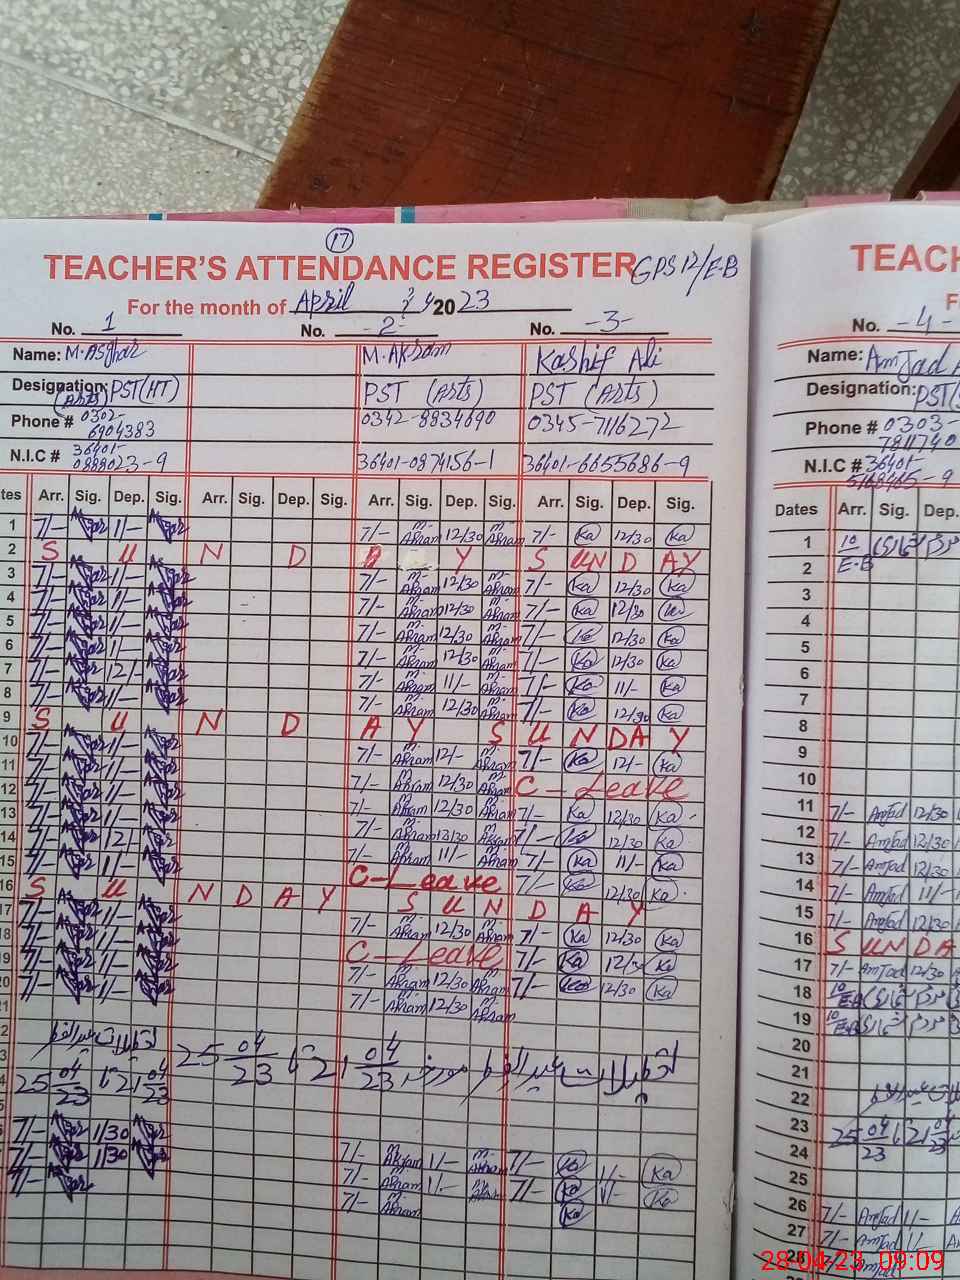 17
TEACHER'S ATTENDANCE REGISTER GPS 12/E-B
For the month of April 2023
No. 1 No. -2- No. -3-
Name: M. Asghar M. Akram Kashif Ali
Designation: PST (HT) (Arts) PST (Arts) PST (Arts)
Phone # 0302-6904383 0342-8834690 0345-7116272
N.I.C # 36401-0888023-9 36401-0874156-1 36401-6655686-9
Arr. Sig. Dep. Sig. Arr. Sig. Dep. Sig. Arr. Sig. Dep. Sig. Arr. Sig. Dep. Sig.
1 7/- 11/- 7/- M. Akram 12/30 M. Akram 7/- Ka 12/30 Ka
2 S U N D A Y S U N D A Y
3 7/- 11/- 7/- M. Akram 12/30 M. Akram 7/- Ka 12/30 Ka
4 7/- 11/- 7/- M. Akram 12/30 M. Akram 7/- Ka 12/30 Ka
5 7/- 11/- 7/- M. Akram 12/30 M. Akram 7/- Ka 12/30 Ka
6 7/- 11/- 7/- M. Akram 12/30 M. Akram 7/- Ka 12/30 Ka
7 7/- 12/- 7/- M. Akram 11/- M. Akram 7/- Ka 11/- Ka
8 7/- 11/- 7/- M. Akram 12/30 M. Akram 7/- Ka 12/30 Ka
9 S U N D A Y S U N D A Y
10 7/- 11/- 7/- M. Akram 12/- M. Akram 7/- Ka 12/- Ka
11 7/- 11/- 7/- M. Akram 12/30 M. Akram C-Leave
12 7/- 11/- 7/- M. Akram 12/30 M. Akram 7/- Ka 12/30 Ka
13 7/- 11/- 7/- M. Akram 12/30 M. Akram 7/- Ka 12/30 Ka
14 7/- 12/- 7/- M. Akram 11/- M. Akram 7/- Ka 11/- Ka
15 7/- 11/- C-Leave 7/- Ka 12/30 Ka
16 S U N D A Y S U N D A Y
17 7/- 11/- 7/- M. Akram 12/30 M. Akram 7/- Ka 12/30 Ka
18 7/- 11/- C-Leave 7/- Ka Ka
19 7/- 11/- 7/- Akram 12/30 M. Akram 7/- Ka 12/30 Ka
20 7/- 11/- 7/- Akram 12/30 M. Akram
تعطیلات عیدالفطر
21 04/23 تا 25 04/23
تعطیلات عیدالفطر مورخہ 21 04/23 تا 25 04/23
7/- 1/30 7/- M. Akram 1/- M. Akram 7/- Ka 1/- Ka
7/- 1/30 7/- M. Akram 1/- M. Akram 7/- Ka 1/- Ka
7/- 7/- M. Akram Ka
TEACH
F
No. -4-
Name: Amjad
Designation: PST
Phone # 0303-7811740
N.I.C # 36401-5168465-9
Dates Arr. Sig. Dep.
1 10/E.B
2
3
4
5
6
7
8
9
10
11 7/- Amjad 12/30
12 7/- Amjad 12/30
13 7/- Amjad 12/30
14 7/- Amjad 11/-
15 7/- Amjad 12/30
16 S U N D A
17 7/- Amjad 12/30
18 10/E.B
19 10/E.B
20
21
22
23 21 04/23 تا 25 04/23
24
25
26 7/- Amjad 1/-
27 7/- Amjad 1/-
28 7/- Amjad
28-04-23 09:09